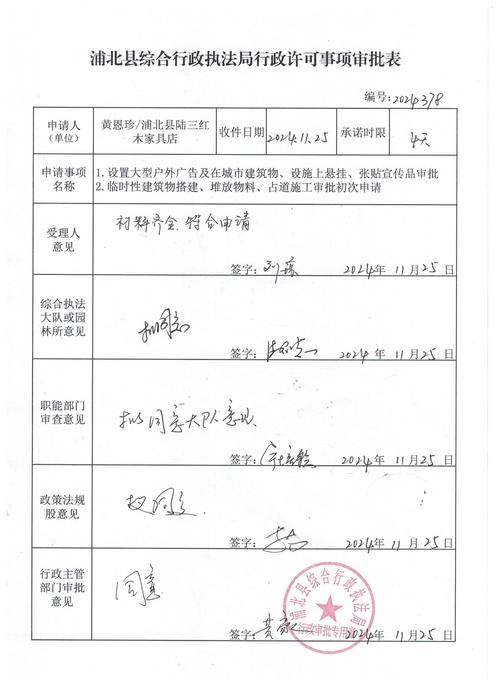 浦北县综合行政执法局行政许可事项审批表
编号:2024378
申请人
(单位)
黄恩珍/浦北县陆三红
木家具店
收件日期
2024.11.25
承诺时限
4天
申请事项
名称
1.设置大型户外广告及在城市建筑物、设施上悬挂、张贴宣传品审批
2.临时性建筑物搭建、堆放物料、占道施工审批初次申请
受理人
意见
材料齐全.符合申请
签字:
2024年 11月25日
综合执法
大队或园
林所意见
拟同意
签字:
2024年 11月25日
职能部门
审查意见
拟同意大队意见.
签字:
2024年 11月25日
政策法规
股意见
拟同意.
签字:
2024年 11月25日
行政主管
部门审批
意见
同意
签字:
2024年 11月25日
浦北县综合行政执法局
行政审批专用章